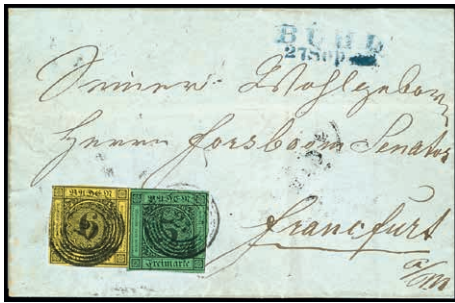 BÜHL
27 Sep
Seiner Wohlgeborn
Herrn Forsboom Senator
Francfurt
a/m
BADEN
BADEN
Freimarke